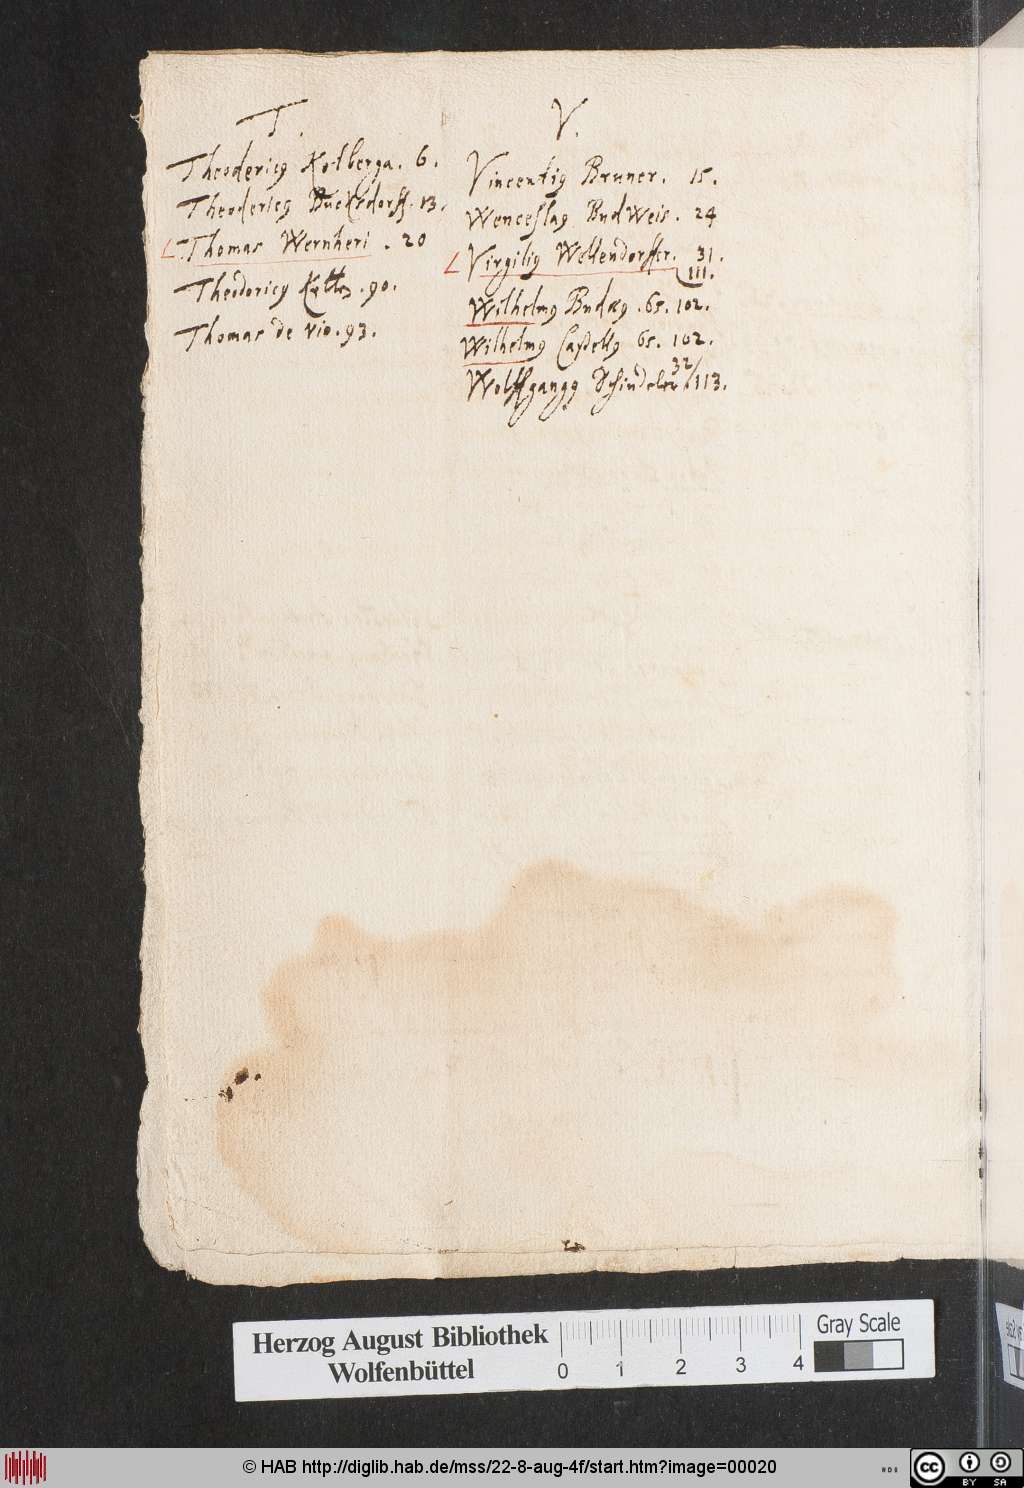 T.
Theodericus Kolberga. 6.
Theodericus Bucksdorff. 13.
Thomas Wernheri . 20
Theodoricus . 90.
Thomas de Vio. 93.
V.
Vincentius Bruner. 15.
Wenceslaus BudWeis. 24
Virgilius Wellendorffer. 31.
111.
Wilhelmus Budæus . 65. 102.
Wilhelmus Castellus 65. 102.
32/
Wolffgangus Schindeler 113.
Herzog August Bibliothek
Wolfenbüttel
0 1 2 3 4
Gray Scale
© HAB http://diglib.hab.de/mss/22-8-aug-4f/start.htm?image=00020
HAB
cc BY SA